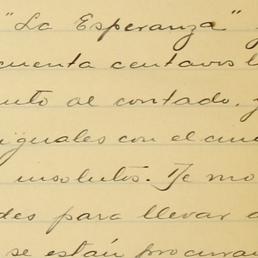 "La Esperanza"
cuenta centavos l
al contado, y
iguales con el
insolutos. De mo
des para llevar a
se están procuran